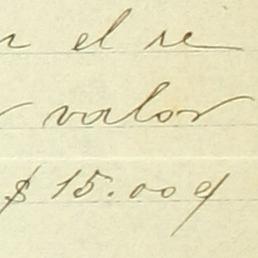 el re
valor
$ 15.00